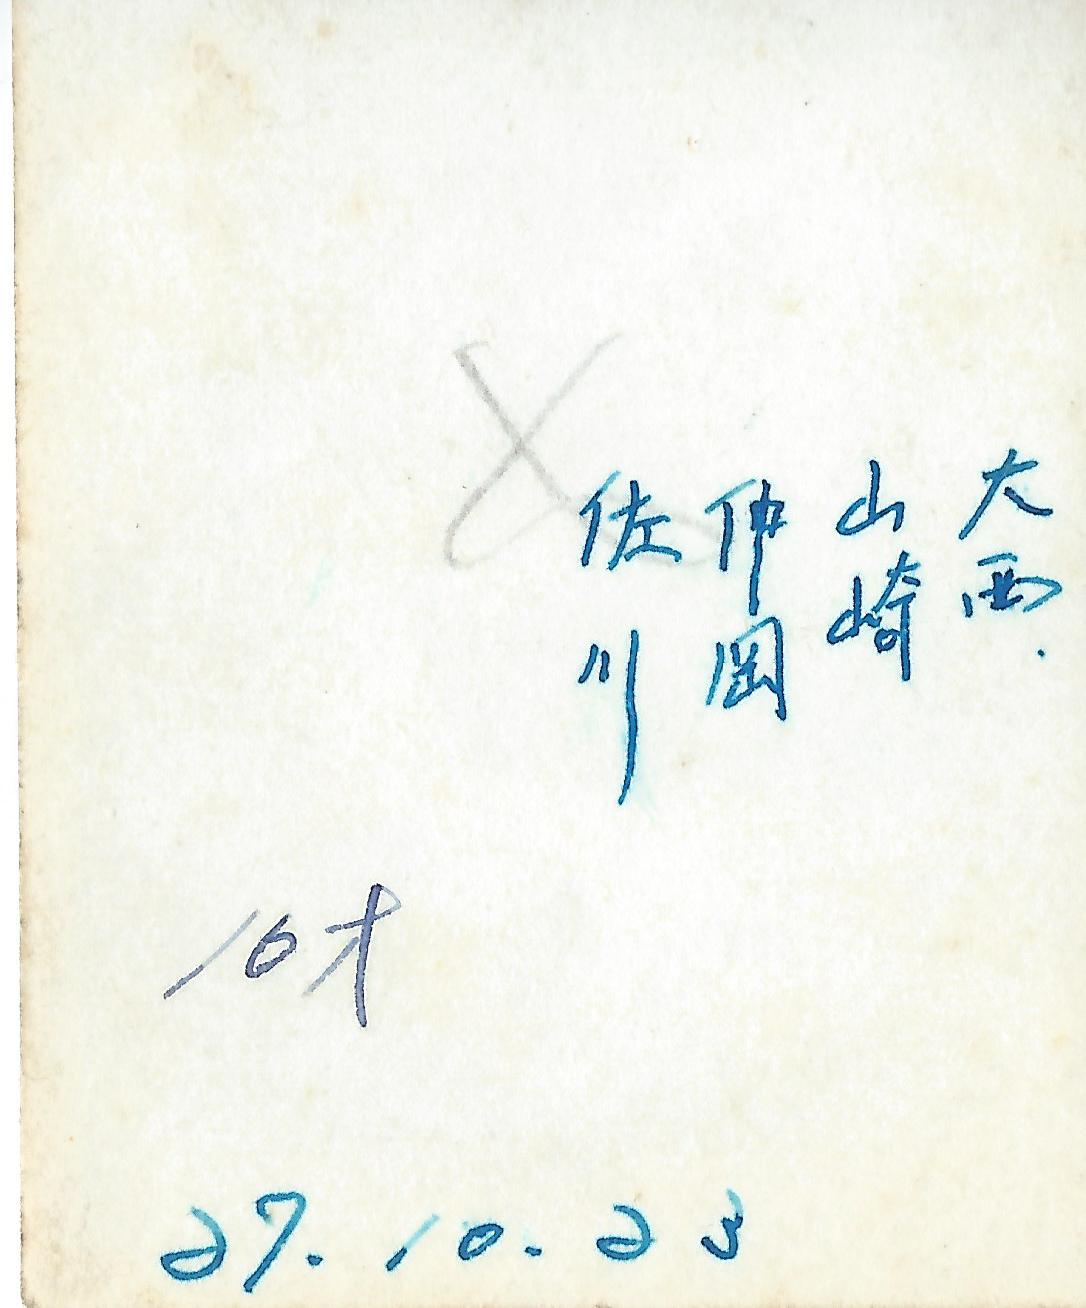 大西.
山崎
仲岡
佐川
10才
27.10.23